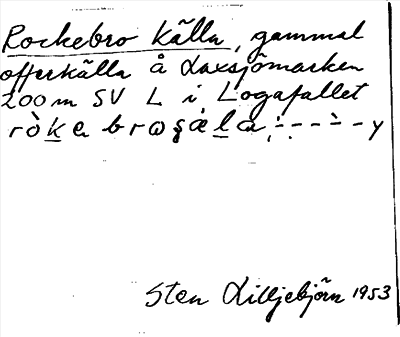 Rockebro källa, gammal
offerkälla å Laxsjömarken
200 m SV L i Logafallet
Sten Lilljebjörn 1953